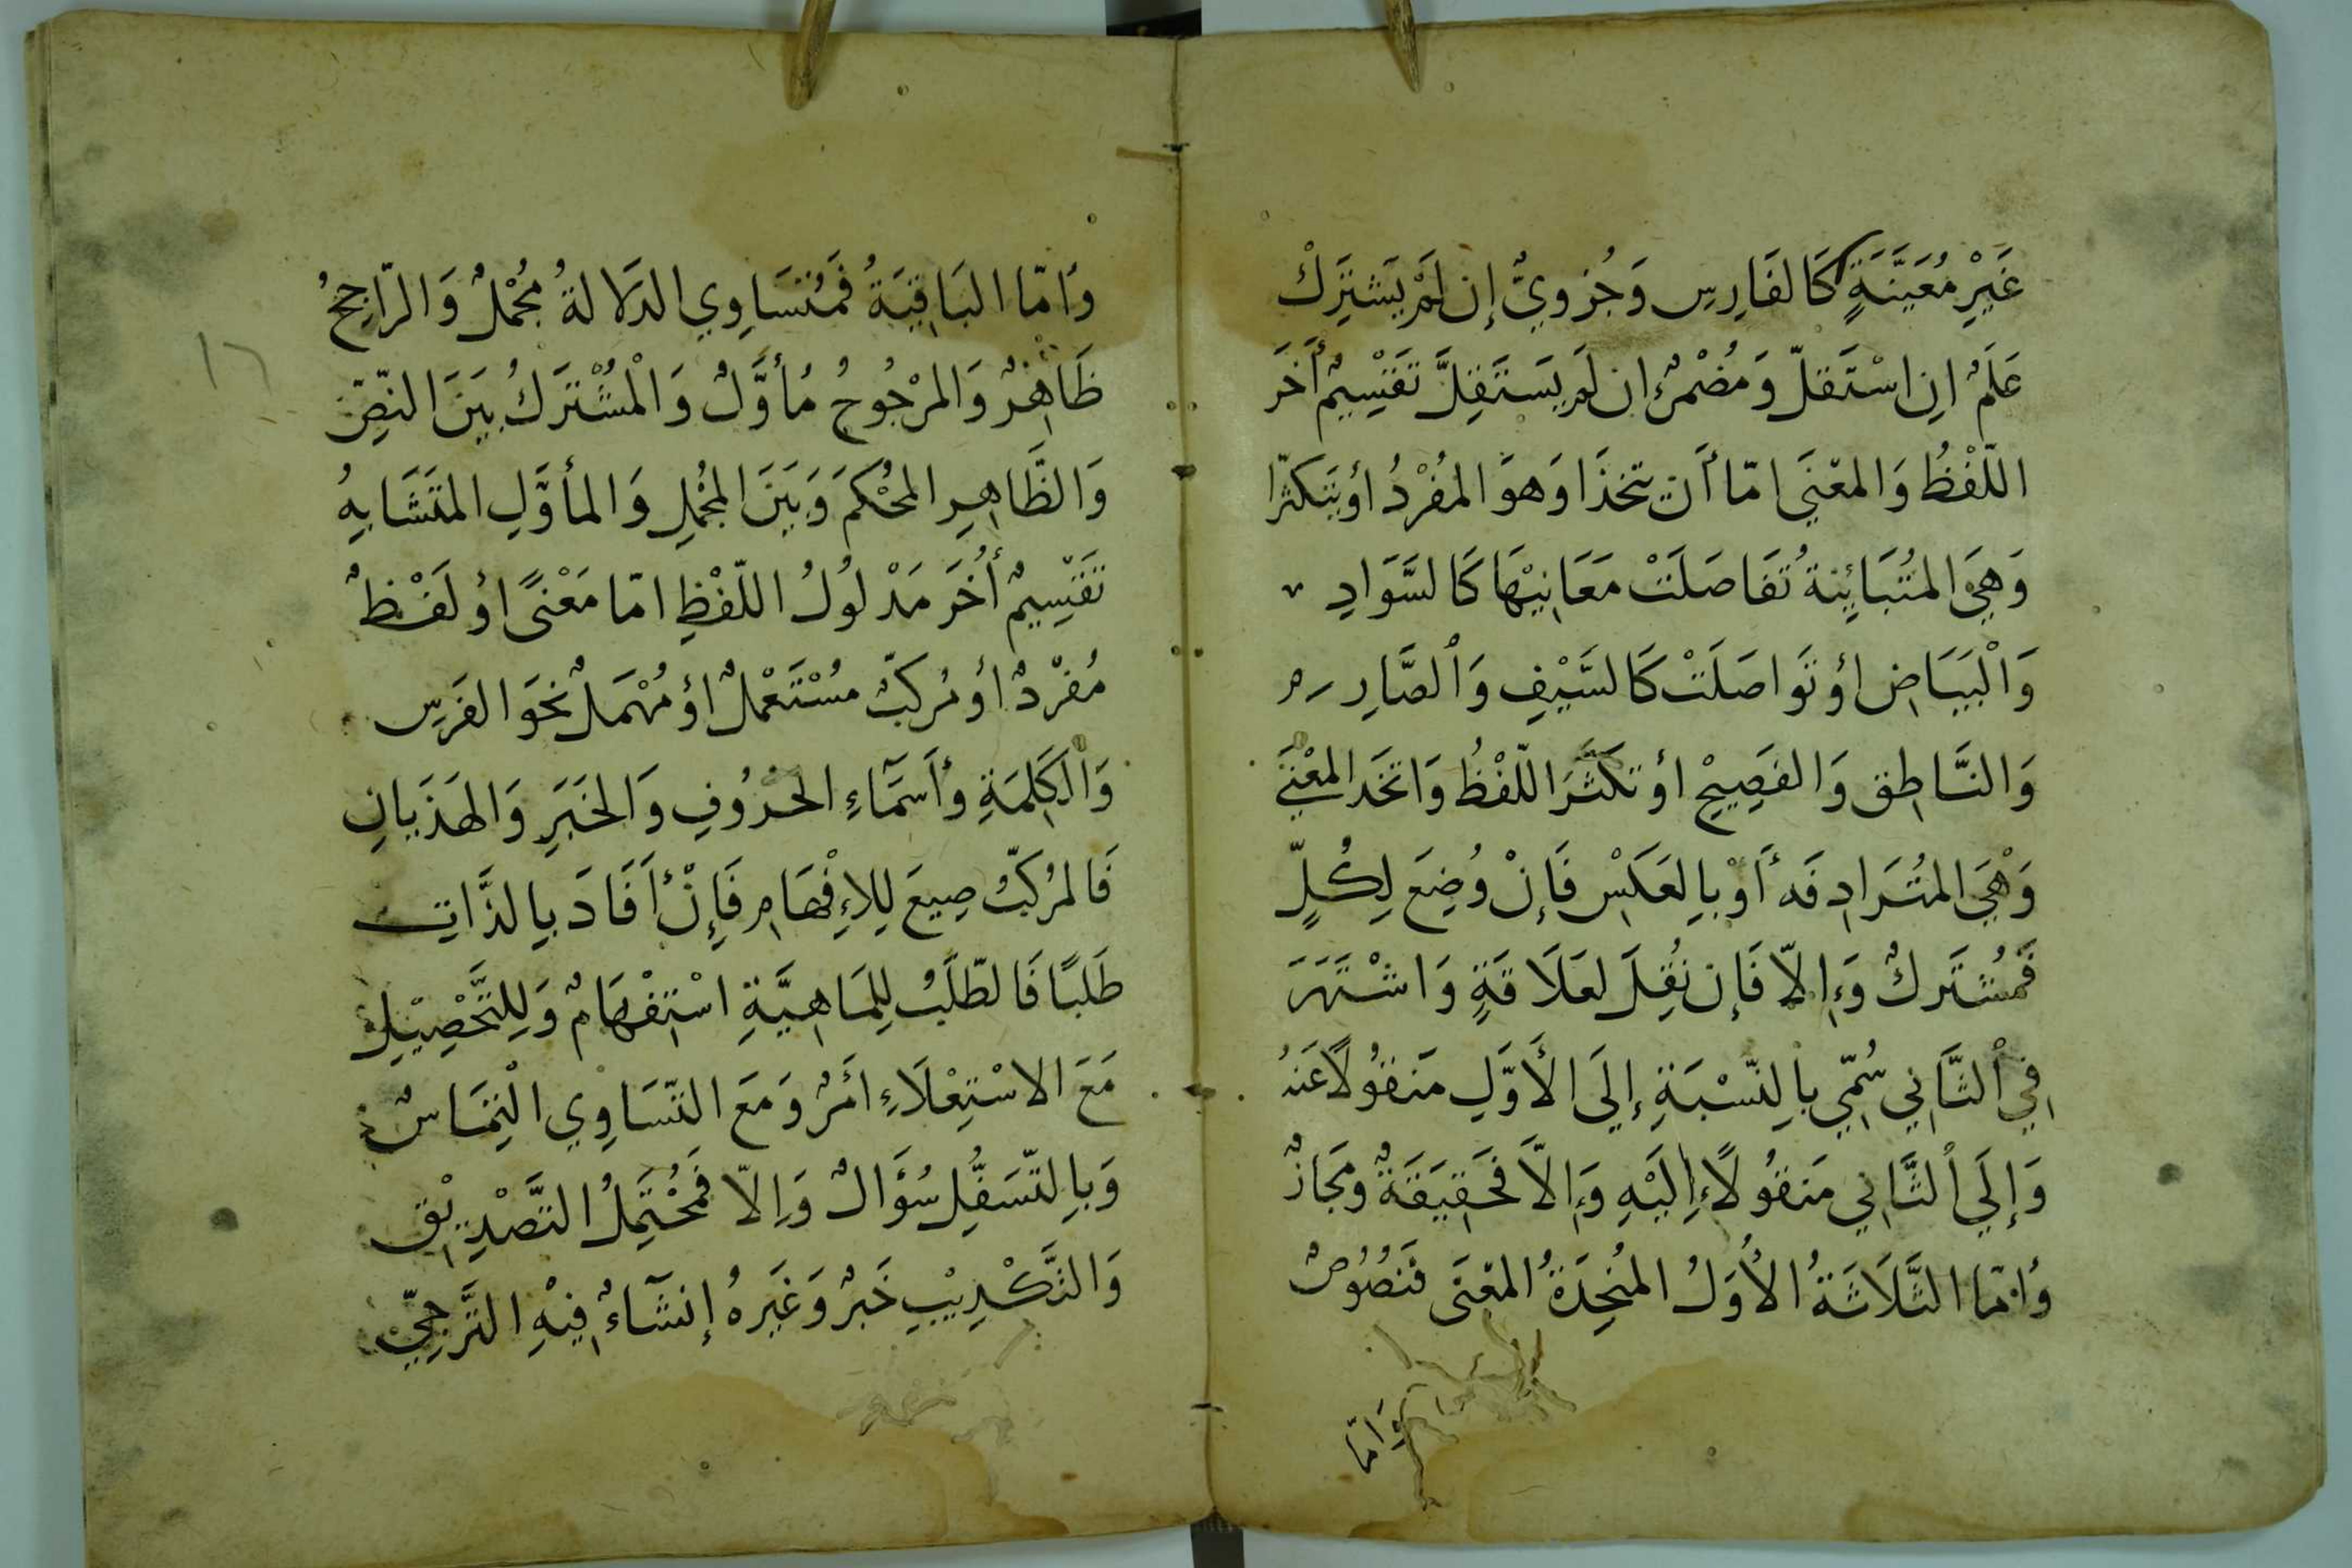 غَيْرِ مُعَيَّنَةٍ كَالفَارِسِ وَجُزْويٌّ إِن لَمْ يَشتَرِكْ
عَلَمٌ اِنِ اسْتَقلّ وَمُضْمَرٌ إِن لَم يَستَقِلَّ تَقسِيمٌ أُخَر
اللّفْظُ وَالمعْنَى امّا أَن يتحدَا وَهوَ المُفْرَدُ أو يتكثرا
وَهِيَ المتُبَايِنةُ تُفَاصَلَتْ مَعَانِيْهَا كَالسَّوَادِ
وَالْبَيَاضِ أو تَواصَلَتْ كَالسَّيْفِ وَالصَّارِم
وَالنَّاطِقِ وَالفَصِيحِ أو تكَثَّرَ اللّفْظُ وَاتحَد المعْنَى
وَهْيَ المتُرَادِفَه أَوْ بِالعَكسِ فَإِنْ وُضِعَ لِكُلٍّ
فَمُشتَركٌ وَإِلاّ فَإِن نُقِلَ لعَلَاقَةٍ وَاشْتَهَرَ
فِي الثَّانِي سُمّي بِالنّسْبَةِ إِلَى الأَوَّلِ مَنقُولًا عَنهُ
وَإِلَى الثَّانِي مَنقُولًا إِلَيْهِ وَإِلاَّ فَحَقِيقَةٌ ومَجَازٌ
وَأمّا الثَّلَاثَةُ الأُوَلُ المُتحِدَةُ المعْنَى فَنصُوصٌ
وَامّا
وَأمّا البَاقِيَةُ فَمُتسَاوِي الدلَالةُ مُجْمَلٌ وَالرّاجِحُ
ظَاهِرٌ وَالمرْجُوحُ مُأوَّلٌ وَالْمُشْتَرَكُ بَينَ النّصِّ
وَالظَّاهِرِ المحْكَمُ وَبَينَ المجْمَلِ وَالمأوَّلِ المتَشَابِهُ
تَقسِيمٌ أُخَرَ مَدْلولُ اللّفْظِ امّا مَعْنًى أو لَفْظٌ
مُفْرَدٌ أو مُركبٌ مسْتَعْملٌ أو مُهْمَلٌ نَحوَ الفَرَسِ
وَالكَلِمَةِ وأَسمَآءِ الحُرُوفِ وَالخبَرِ وَالهذَيانِ
فَالمرُكبُّ صِيغَ لِلإِفْهَامِ فَإِنْ أَفَادَ بِالذَّاتِ
طَلَبًا فَالطّلَبُ لِلمَاهِيَّةِ اسْتِفْهَامٌ وَلِلتَّحْصِيْلِ
مَعَ الاسْتِعْلَاءِ أمْرٌ وَمَعَ التّسَاوِي الْتِمَاسٌ
وَبِالتّسَفُّلِ سُؤَالٌ وَإِلاّ فَمُحْتَمِلُ التَّصْدِيْقِ
وَالتَّكْذِيْبِ خَبَرٌ وَغَيرهُ إنشَآءٌ فِيْهِ التَّرَجِّي
١٦